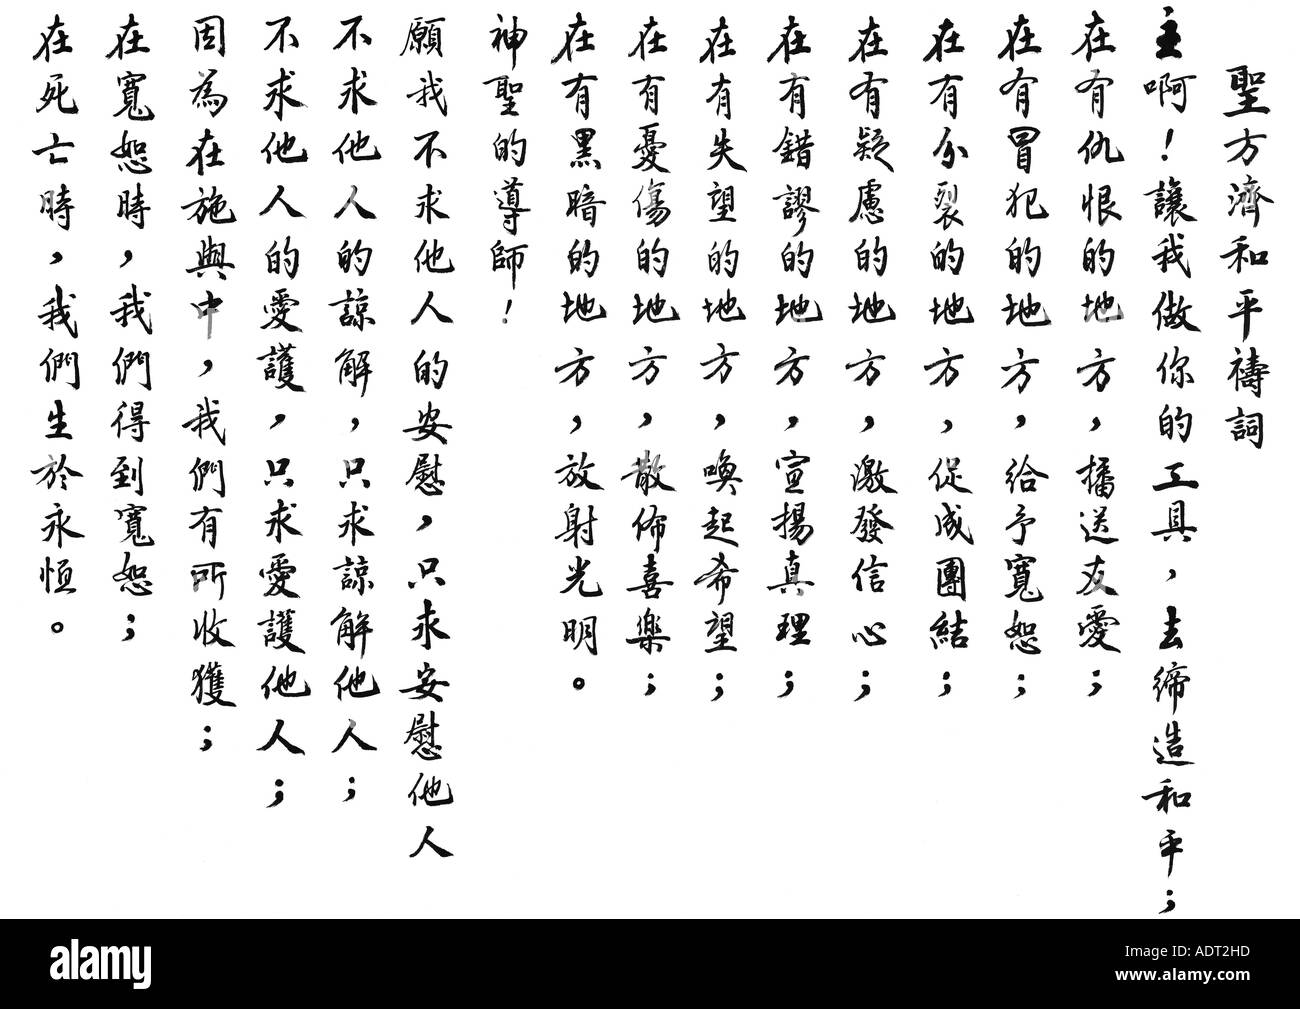 聖方濟和平禱詞
主啊！讓我做你的工具，去締造和平；
在有仇恨的地方，播送友愛；
在有冒犯的地方，給予寬恕；
在有分裂的地方，促成團結；
在有疑慮的地方，激發信心；
在有錯謬的地方，宣揚真理；
在有失望的地方，喚起希望；
在有憂傷的地方，散佈喜樂；
在有黑暗的地方，放射光明。
神聖的導師！
願我不求他人的安慰，只求安慰他人
不求他人的諒解，只求諒解他人；
不求他人的愛護，只求愛護他人；
因為在施與中，我們有所收獲；
在寬恕時，我們得到寬恕；
在死亡時，我們生於永恒。
alamy
Image ID: ADT2HD
www.alamy.com